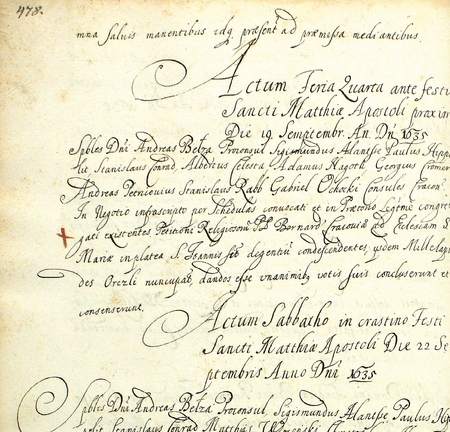 478.
mna salvis manentibus idq, præsent ad præmissa mediantibus.
Actum Feria Quarta ante festi
Sancti Matthiæ Apostoli proxim
Die 19 Semptembr. An. Dni 1635
Spbles Dni Andreas Belza Proconsul Sigismundus Alantse Paulus Hipp
lit Stanislaus Conrad Albertus Celesta Adamus Nagoth, Georgius
Andreas Stanislaus Rabb Gabriel Ochocki Consules Cracov.
In Negotio infrascripto per Schedulas convocati et in Prætorio Legitime congre
gati existentes Petitioni Religiosorū Bernard Cracoviæ ad Ecclesiam S
Mariæ in platea S. Ioannis degentiū condescendentes, quidem Mille
des Orczli nuncupat, dandos esse unanimib, votis suis concluserunt et
consenserunt.
Actum Sabbatho in crastino Festi
Sancti Matthiæ Apostoli Die 22 Se
ptembris Anno Dni 1635
Spbles Dni Andreas Belza Proconsul, Sigismundus Alantse Paulus Hip
Stanislaus Conrad Matthias